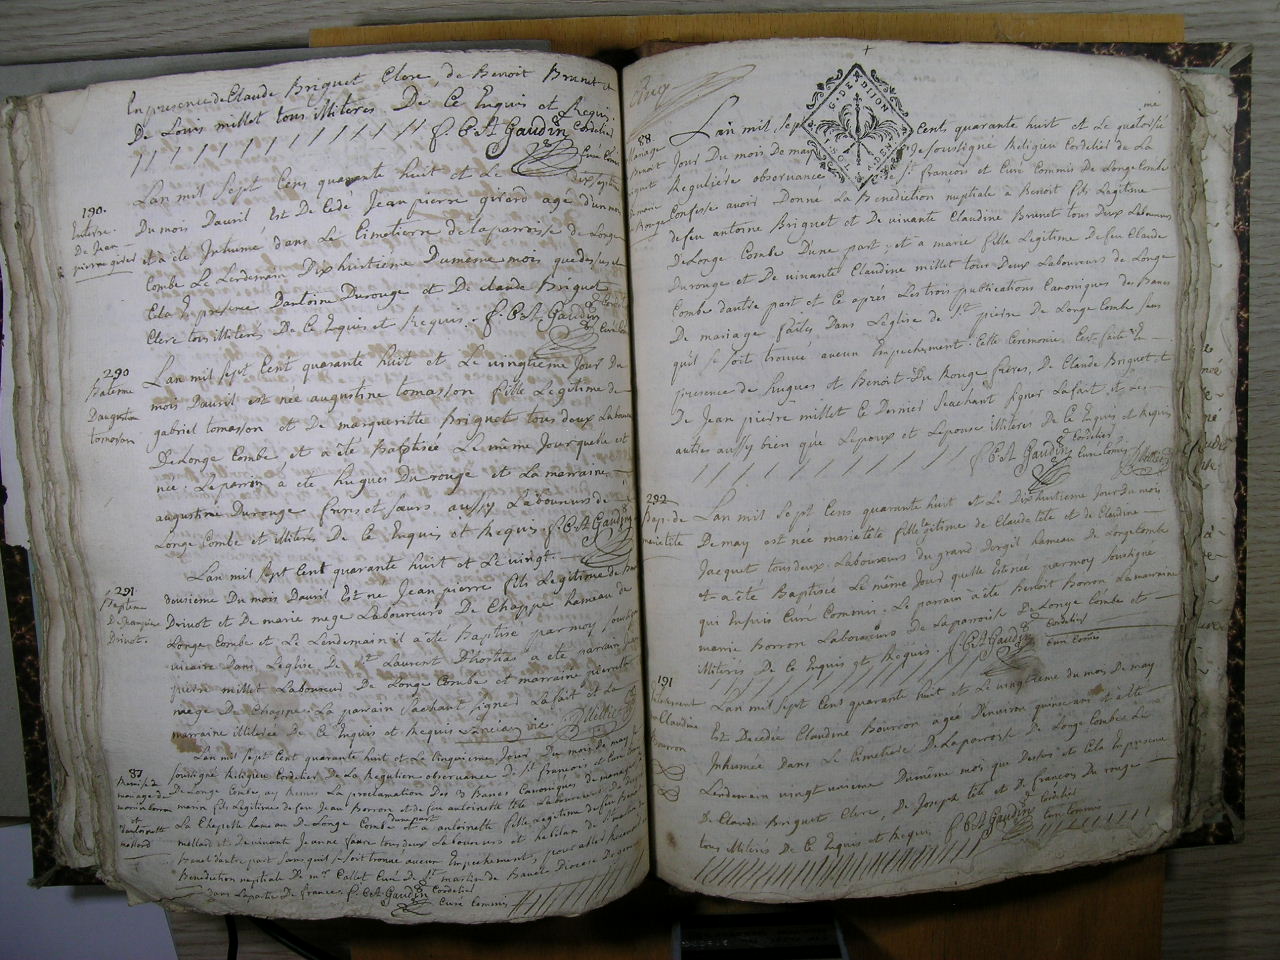 En presence de Claude Briguet Clerc de Benoit Brunet et
De Louis millet tous Illiteres De Ce Enquis et Requis.
f. C. A. Gaudin Cordelier
Curé Comis
190.
Enterre.
De Jean
pierre girod
Lan mil Sept Cens quarante huit et Le dix septie
Du mois Dauril Est De Cede Jean pierre girod agé d'un mois
et a ete Inhumé dans Le Cimetierre de la paroisse de Longe
Combe Le Lendemain Dixhuitieme Du même mois que dessus et
Cela En presence Dantoine Durouge et De Claude Briguet
Clerc tous Illiteres De Ce Enquis et Requis. f. C. A. Gaudin
Curé Com
290
Bateme
Daugustine
tomasson
Lan mil Sept Cent quarante huit et Le vingtieme Jour Du
mois Dauril est née augustine tomasson fille Legitime de
gabriel tomasson et De margueritte Briguet tous deux Laboureurs
De Longe Combe et a ête Baptisée Le même Jour quelle est
née. Le parrin a ête hugues Du rouge et La marraine
augustine Durouge freres et Sœurs aussy Laboureurs de
Longe Combe et Illiteres De Ce Enquis et Requis f. C. A. Gaudin
291
Bapteme
De Jeanpierre
Drivot.
Lan mil Sept Cent quarante huit et Le vingt
deuxieme Du mois Dauril Est né Jean pierre fils Legitime de
Drivot et De marie mege Laboureurs De Chappe hameau de
Longe Combe et Le Lendemain il a été Baptisé par moy soussigné
vicaire Dans L'eglise De St. Laurent D'hostias a ete parrain
pierre millet Laboureur De Longe Combe et marraine pierrette
mege De Chappe. Le parrain Sachant signer La fait et La
marraine illiterée De Ce Enquis et Requis
87
Remise de
mariage de
marin borron
et
d'antoinette
mellard
Lan mil Sept Cent quarante huit et Le Cinquieme Jour Du mois de may
Soussigné Religieu Cordelier De La Reguliere observance De St. françois et Curé
De Longe Combe ay Remis La proclamation Des 3 Banes Canoniques de mariage
marin fils Legitime de feu Jean Borron et de feu antoinette tête Laboureurs De
La Chapelle hameau De Longe Combe Dune part et a antoinette fille Legitime de feu
mellard et De vivante Jeanne faure tous deux Laboureurs et habitan De St martin de
Banel dautre part Sans quil se soit trouvé aucun Empechement, pour aller Recevoir
Benediction nuptiale De mr. Callet Curé De St. martin de Banel Diocese De
dans La partie de france. f. C. A. Gaudin Cordelier
Curé Commis
G. DE DIJON
88
mariage
Benoit
Briguet
marie
Rouge
Lan mil Sept Cents quarante huit et Le quatorsié me
Jour Du mois De may Je soussigné Religieu Cordelier de La
Reguliére observance de St. francois et Curé Commis De Longe Combe
Confesse avoir Donné La Benediction nuptiale a Benoit fils Legitime
de feu antoine Briguet et De vivante Claudine Brunet tous Deux Laboureurs
De Longe Combe Dune part; et a marie fille Legitime De feu Claude
Durouge et De vivante Claudine millet tous Deux Laboureurs de Longe
Combe dautre part et Ce aprés Les trois publications Canoniques des Banes
De mariage faites Dans L'eglise de St. pierre de Longe Combe Sens
quil Se Soit trouvé aucun Empechement. Cette Ceremonie. Cest faite En
presence de hugues et Benoit Du Rouge freres, De Claude Briguet et
De Jean pierre millet Le Dernier Seachant Signer La fait et Les
autres aussy bien que Lepoux et Lepouse Illiteres De Ce Enquis et Requis
f. C. A. Gaudin Cordelier
Curé Comis
292
Bap. de
marie tête
Lan mil Sept Cens quarante huit et Le Dixhuitieme Jour Du mois
De may est née marie tête fille Legitime de Claude tête et de Claudine
Jacquet tous deux Laboureurs du grand Dorgil hameau De Longe Combe
et a été Baptisée Le même Jour quelle Est née par moy Soussigné
qui Depuis Curé Commis. Le parrain a ête Benoit Borron La marraine
marie Borron Laboureurs De La parroisse De Longe Combe et
Illiteres De Ce Enquis et Requis. f. C. A. Gaudin Cordelier
Curé Comis
191
Claudine
Bourron
Lan mil Sept Cens quarante huit et Le vingtieme du mois De may
Est Decedée Claudine Bourron agée Denviron quinze ans et a ete
Inhumée Dans Le Cimetiere De La paroisse De Longe Combe Le
Lendemain vingt unieme Du même mois que Dessus et Cela En presence
De Claude Briguet Clerc, De Joseph tête et De francois Du rouge
tous Illiteres De Ce Enquis et Requis. f. C. A. Gaudin Cordelier
Curé Commis